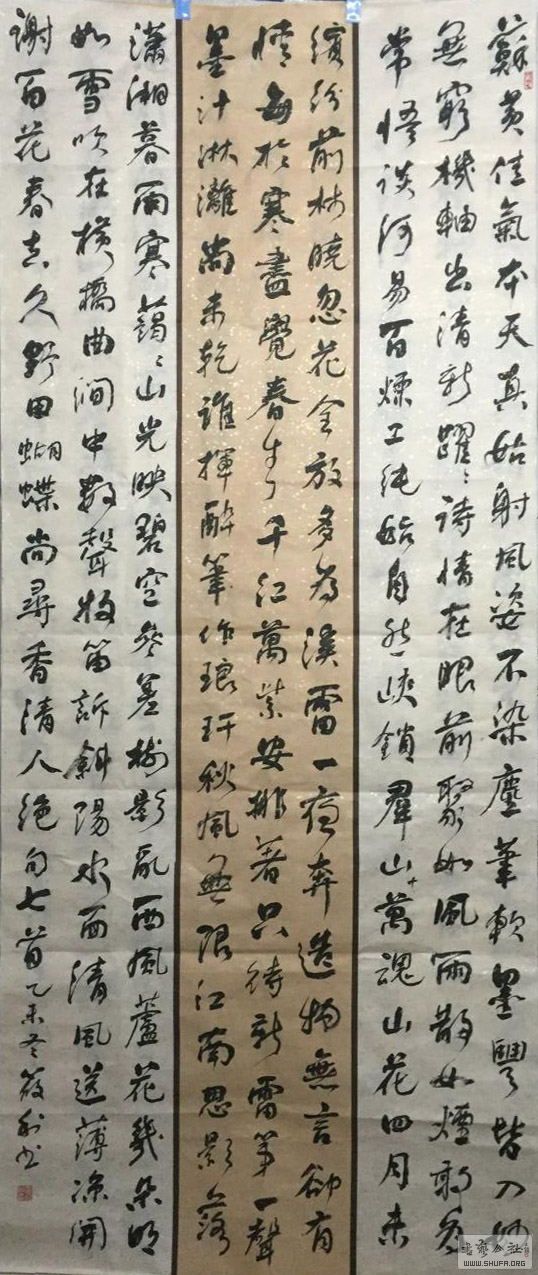 蘇黄佳氣本天真姑射風姿不染塵筆軟墨豐皆入妙
無窮機軸出清新躍〻詩情在眼前聚如風雨散如煙敢为
常悟談何易百煉工純始自然峽鎖群山萬魂山花四月未
繽紛前村曉忽花全放多为溪雷一夜奔造物無言卻有
情每於寒盡覺春生千红萬紫安排著只待新雷第一聲
墨汁淋灕尚未乾誰揮醉筆作琅玕秋風無限江南思影落
瀟湘暮雨寒藹〻山光映碧空参差樹影亂西風蘆花幾朵明
如雪吹在橫橋曲澗中數聲牧笛訴斜陽水面清風送薄涼開
謝百花春去久野田蝴蝶尚尋香清人絶句七首乙未冬
書藝公社
WWW.SHUFA.ORG